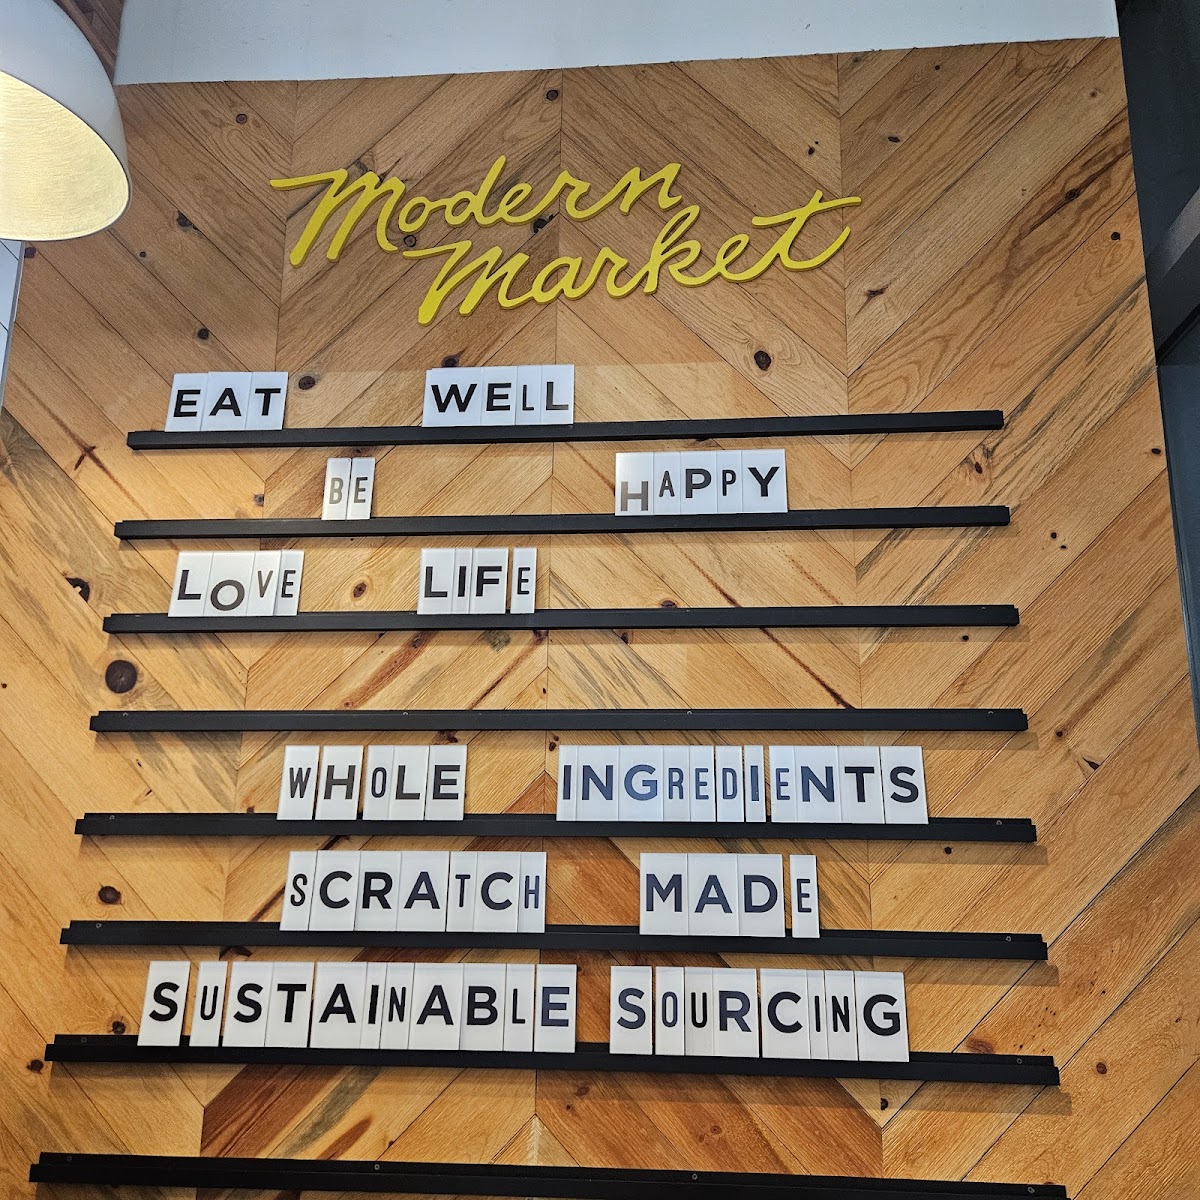 Modern
Market
EAT WELL
BE HAPPY
LOVE LIFE
WHOLE INGREDIENTS
SCRATCH MADE
SUSTAINABLE SOURCING